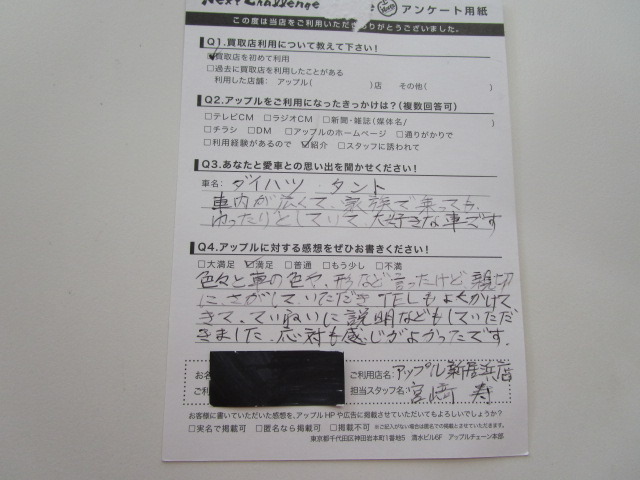 Next Challenge アンケート用紙
この度は当店をご利用いただきありがとうございました。
Q1.買取店利用について教えて下さい!
☑買取店を初めて利用
□過去に買取店を利用したことがある
利用した店舗: アップル( )店 その他( )
Q2.アップルをご利用になったきっかけは?(複数回答可)
□テレビCM □ラジオCM □新聞・雑誌(媒体名/ )
□チラシ □DM □アップルのホームページ □通りがかりで
□利用経験があるので ☑紹介 □スタッフに誘われて
Q3.あなたと愛車との思い出を聞かせてください!
車名: ダイハツ タント
車内が広くて、家族で乗っても
ゆったりとしていて、大好きな車です
Q4.アップルに対する感想をぜひお書きください!
□大満足 ☑満足 □普通 □もう少し □不満
色々と車の色や、形など言ったけど、親切
に、さがして、いただき TELもよくかけて
きて、ていねいに説明などもしていただ
きました、応対も感じがよかったです.
お名 ご利用店名: アップル新居浜店
ご利 担当スタッフ名: 宮崎 寿
お客様に書いていただいた感想を、アップルHPや広告に掲載させていただいてもよろしいでしょうか?
□実名で掲載可 □匿名なら掲載可 □掲載不可 ※ご記入がない場合は匿名での掲載とさせていただきます。
東京都千代田区神田岩本町1番地5 清水ビル6F アップルチェーン本部